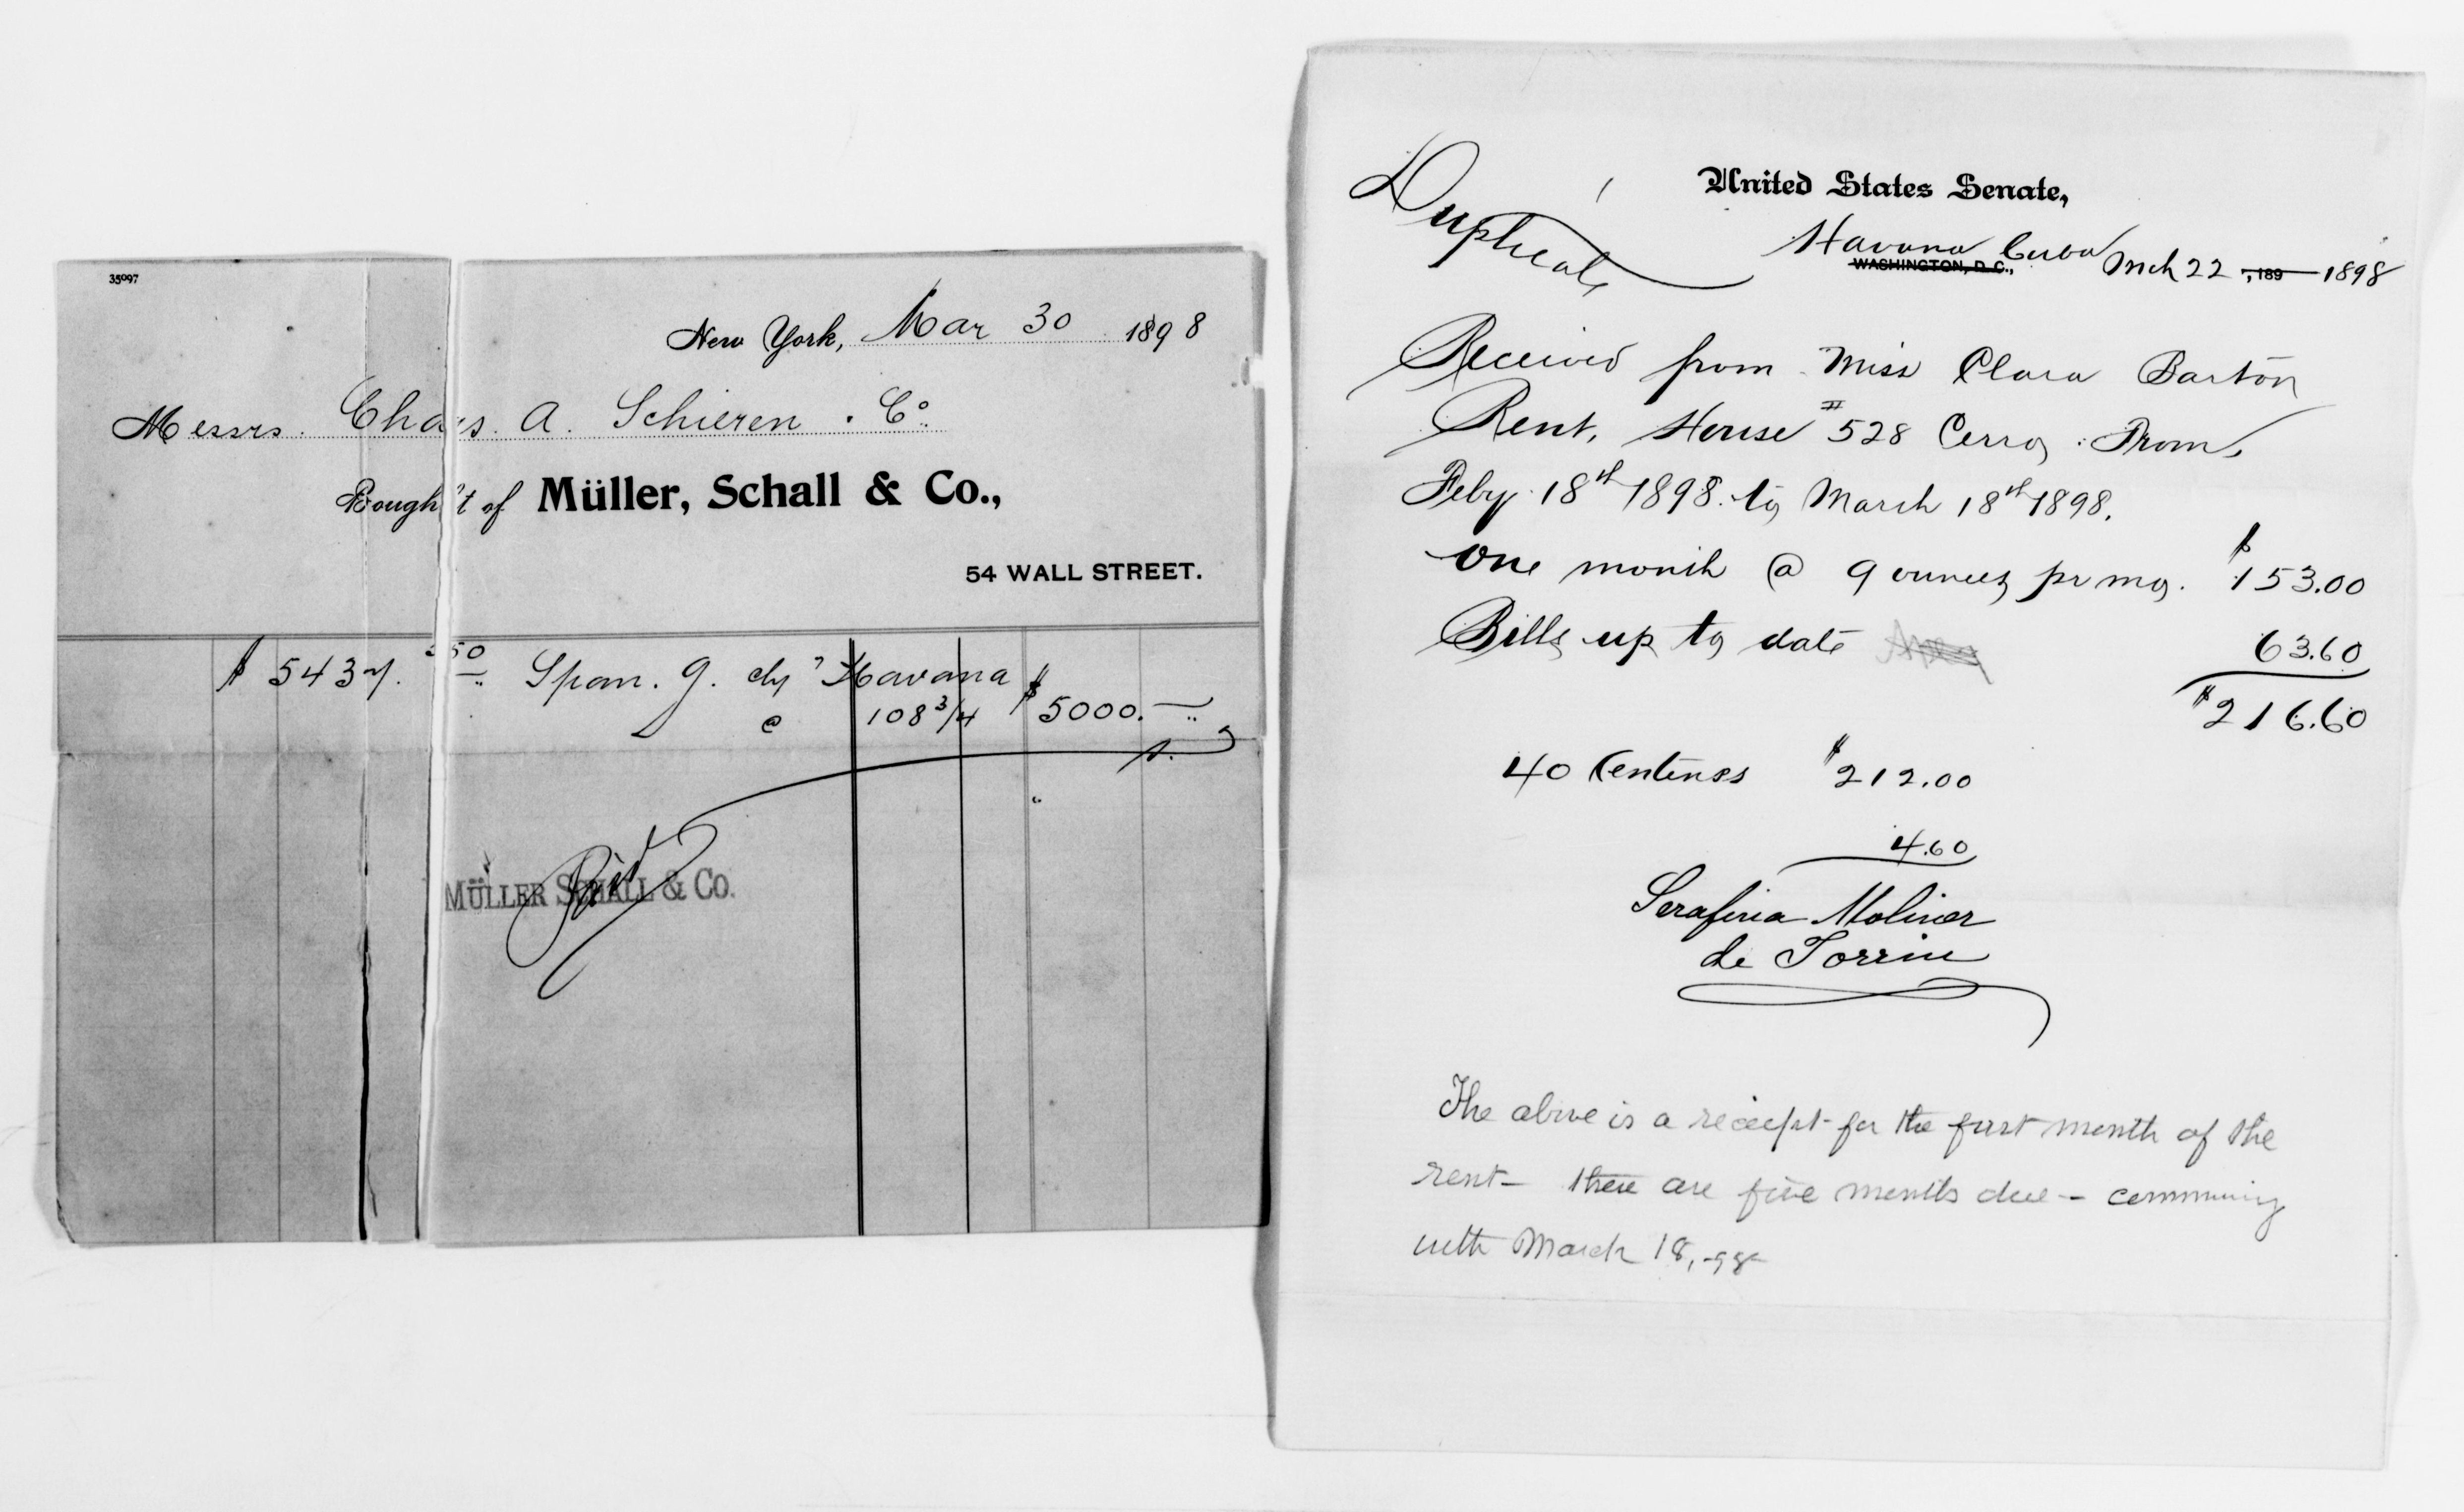 35097
New York, Mar 30 1898
Messrs. Chas. A. Schieren . Co.
Bought of Müller, Schall & Co.,
54 WALL STREET.
$ 5437. 50 Span. g. Havana
@ 108 3/4 $ 5000.—
MÜLLER SCHALL & CO.
Duplicate
United States Senate,
Havana Cuba
WASHINGTON, D. C., Mch 22 , 189 1898
Received from Miss Clara Barton
Rent, House # 528 Cerro, From,
Feby 18th 1898. to March 18th 1898.
one month @ 9 ounces pr mo. $153.00
Bills up to date 63.60
$216.60
40 Centenes $212.00
4.60
Serafina Moliner
de Torrin
The above is a receipt for the first month of the
rent — there are five months due — commencing
with March 18, -98-